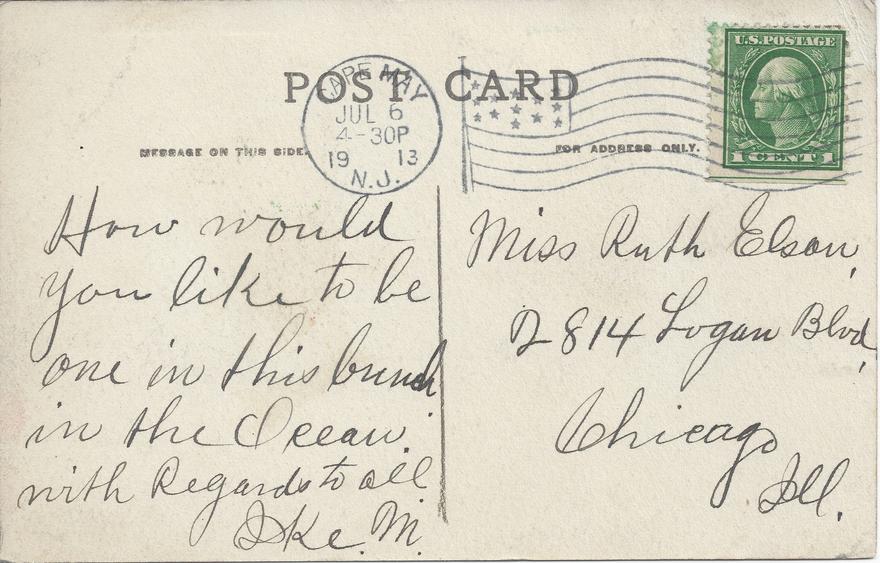 POST CARD
CAPE MAY
JUL 6
4-30P
19 13
N.J.
U.S. POSTAGE
1 CENT 1
MESSAGE ON THIS SIDE.
FOR ADDRESS ONLY.
How would
you like to be
one in this bunch
in the Ocean.
with Regards to all
Ike. M.
Miss Ruth Elson,
2814 Logan Blvd,
Chicago
Ill.